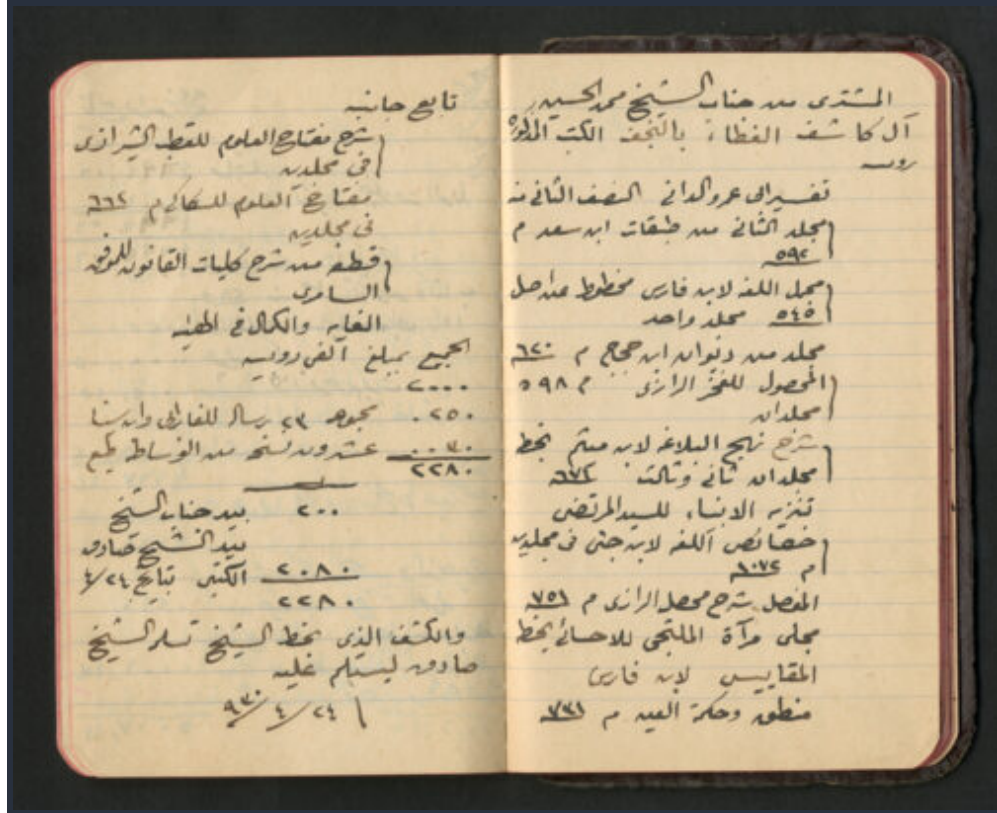 المشترى من جناب الشيخ محمد الحسين
آل كاشف الغطاء بالنجف الكتب المذكورة
روبيه
تفسير ابى عمرو الدانى النصف الثانى منه
مجلد الثانى من طبقات ابن سعد م
٥٩٢
مجمل اللغه لابن فارس مخطوط عن اصل
٥٤٥ مجلد واحد
مجلد من ديوان ابن حجاج م ٦٢٠
المحصول للفخر الرازى م ٥٩٨
مجلدان
شرح نهج البلاغه لابن ميثم بخط
مجلدان ثانى وثالث ٦٧٢
تنزيه الانبياء للسيد المرتضى
خصائص اللغه لابن جنى فى مجلدين
م ١٠٧٢
المفصل شرح محصل الرازى م ٧٥١
مجلى مرآة الملتجى للاحسائى بخط
المقاييس لابن فارس
منطق وحكمة العين م ٧٣١
تابع جانبه
شرح مفتاح العلوم للقطب الشيرازى
فى مجلدين
مفتاح العلوم للسكاكى م ٦٦٢
فى مجلدين
قطعه من شرح كليات القانون للموفق
السامرى
الغايه والكمال فى
الجميع بمبلغ الفى روبيه
٢٠٠٠
٠٢٥٠ ٢٣ رساله للفارابى وابن سينا
٠٠٣٠ عشرون نسخه من الوساطه طبع
٢٢٨٠
٢٠٠ بيد جناب الشيخ
بيد الشيخ صادق
٢٠٨٠ الكتبى بتاريخ ٢٤/٤
٢٢٨٠
والكشف الذى بخط الشيخ تسلم الشيخ
صادق ليستلم عليه
٢٤/٤/٩٣٠